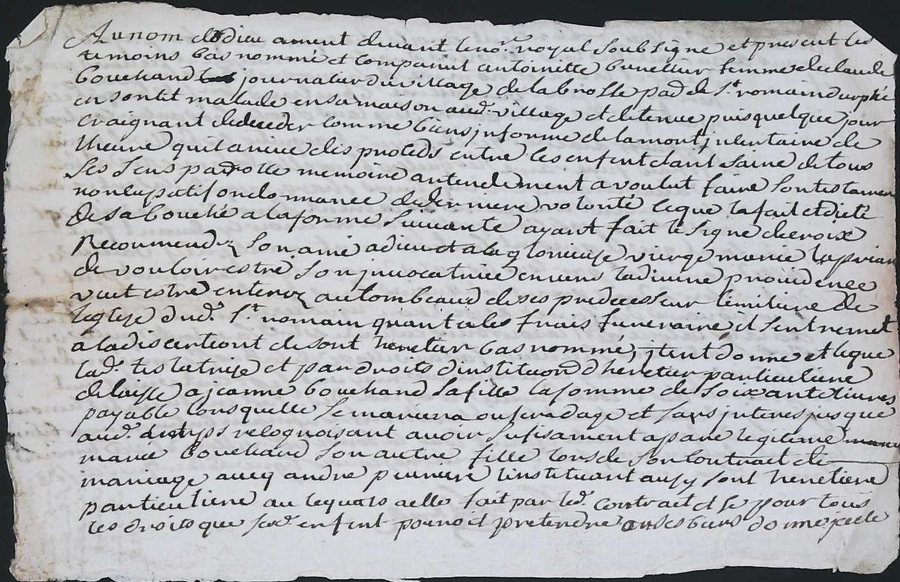 Au nom de dieu ament devant le no.re royal soubsigne et present les
temoins bas nommé et comparut antoinette brunetier femme de claude
bouchand journalier du village de labrosse par.d de s.t romain durphé
en son lit malade en sa maison aud.t village et detenue puis quelque jour
craignant dedeceder comme bien informe de la mort
lheure quil a veue des procteds entre les enfent etant saine de tous
ses sens parolle memoire antendement a voulut faire son testament
noncupatif ordonnance de derniere volonté leque la fait et dicté
de sa bouche a la forme suivante ayant fait le signe de croix
Recommendez son ame a dieu et a la glorieuse vierge marie la priant
de vouloir estre son invocatrice envers la divine providence
veut estre enterez au tombeaud de ses predecesseur cemitiere de
leglise dud.t s.t romain quant a les frais funeraire il sen remet
a la discentiont de sont heretier bas nommé, donne et legue
lad.e testatrise et par droits dinstitutiond dheretier particuliere
delaisse a jeanne bouchand sa fille la somme de soixante livres
payable lorsquelle se mariera ou sera dage et sans interes jusque
aud.t temps relognoisant avoir sufisament apane legitime
marie bouchand son autre fille lors de son contrait de
mariage avecq andre prunier linstituant ausy sont heretiere
particuliere au lequats a elle fait par led.t contrait et se pour tous
les droits que sesd.t enfent pouroit pretendre en ses biens donne